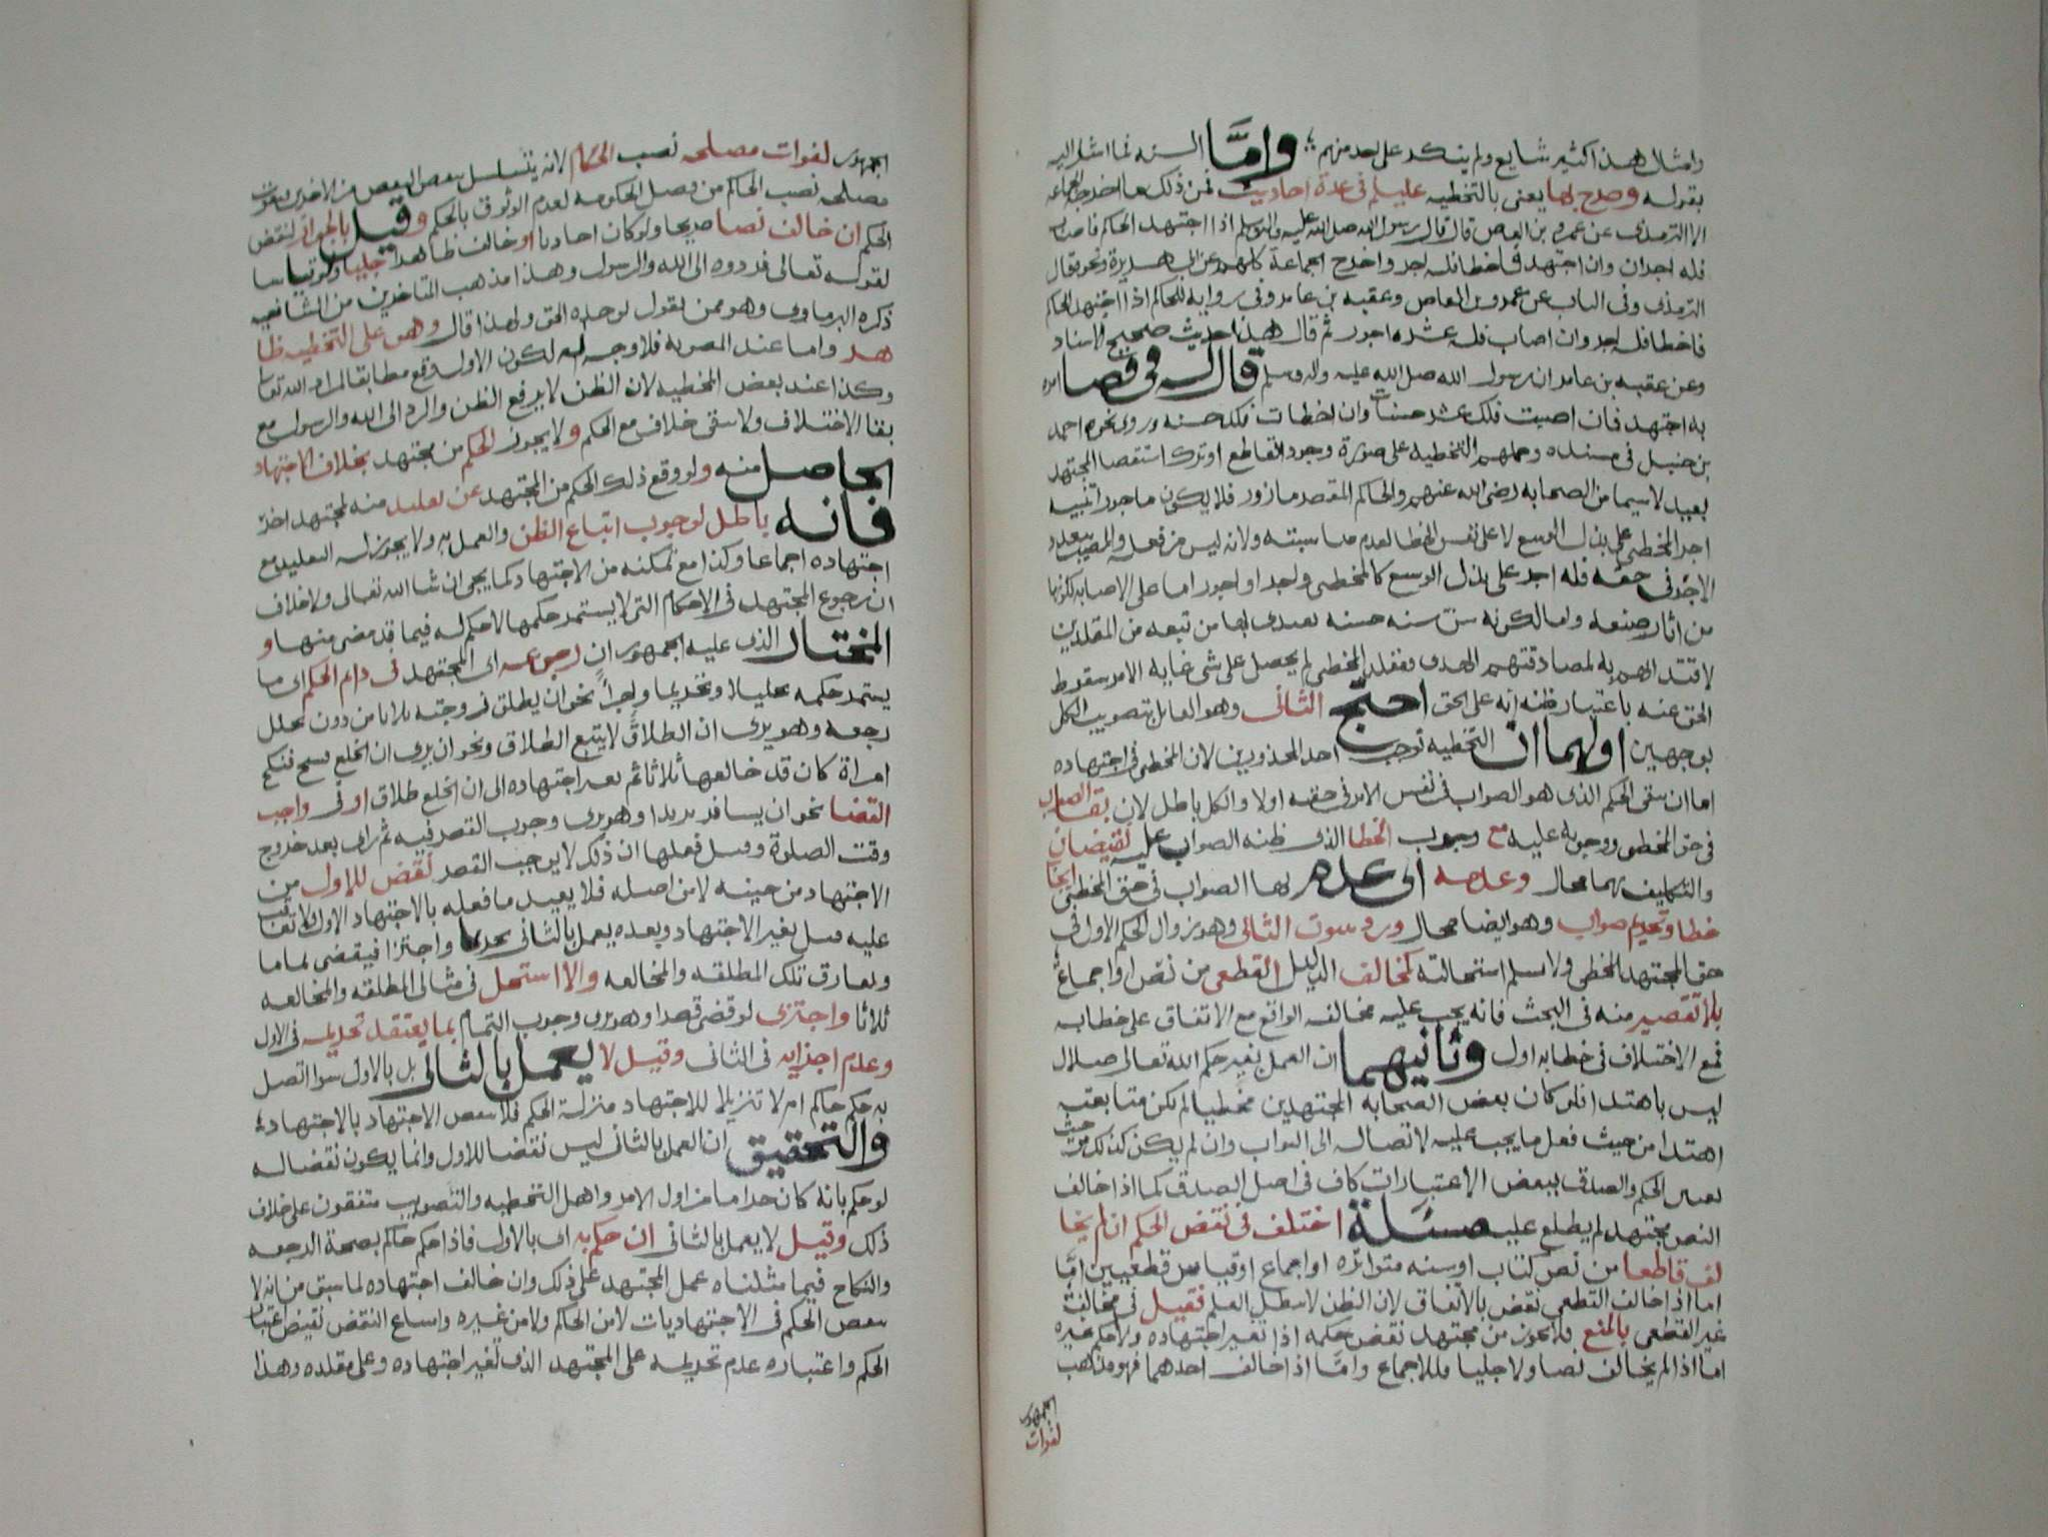 وامثال هذا كثير شايع ولم ينكر على احد منهم واما السنه فما اشار اليه
بقوله وصرح بها يعنى بالتخطيه عليلم فى عدة احاديث فمن ذلك ما اخرجه الجماعه
الا الترمذى عن عمرو بن العاص قال قال رسول الله صلى الله عليه واله وسلم اذا اجتهد الحاكم فاصاب
فله اجران وان اجتهد فاخطا فله اجر واخرج الجماعة كلهم عن ابى هريرة ونحوه قال
الترمذى وفى الباب عن عمرو بن العاص وعقبه بن عامر وفى رواية للحاكم اذا اجتهد الحاكم
فاخطا فله اجر وان اصاب فله عشرة اجور ثم قال هذا حديث صحيح الاسناد
وعن عقبه بن عامر ان رسول الله صلى الله عليه واله وسلم قال له فى قضا امره
به اجتهد فان اصبت فلك عشر حسنات وان اخطات فلك حسنه وروى نحوه احمد
بن حنبل فى مسنده وحملهم التخطيه على صورة وجود القاطع او ترك استقصا المجتهد
بعيد لا سيما من الصحابه رضى الله عنهم والحاكم المقصر مازور فلا يكون ماجورا تنبيه
اجر المخطى على بذل الوسع لا على نفس الخطا لعدم مناسبته ولانه ليس من فعله والمصيب يتعدد
الاجر فى حقه فله اجر على بذل الوسع كالمخطى واجر او اجور اما على الاصابه لكونها
من اثار صنعه واما لكونه سن سنه حسنه يقتدى بها من تبعه من المقلدين
لاقتدائهم به لمصادفتهم الهدى ومقلد المخطى لم يحصل على شى غايه الامر سقوط
الحق عنه باعتبار ظنه انه على الحق احتج الثانى وهو القايل بتصويب الكل
بوجهين اولهما ان التخطيه توجب احد المحذورين لان المخطى فى اجتهاده
اما ان يبقى الحكم الذى هو الصواب فى نفس الامر فى حقه اولا والكل باطل لان بقا الصواب
فى حق المخطى ووجوبه عليه مع وجوب الخطا الذى ظنه الصواب عليه نقيضان
والتكليف بهما محال وعدمه اى عدم بقا الصواب فى حق المخطى ايجاب
خطا وتحريم صواب وهو ايضا محال ورد بثبوت الثانى وهو زوال الحكم الاول فى
حق المجتهد المخطى ولا نسلم استحالته كمخالف الدليل القطعى من نص او اجماع
بلا تقصير منه فى البحث فانه يجب عليه مخالفه الواقع مع الاتفاق على خطايه
فمع الاختلاف فى خطايه اولى وثانيهما ان العمل بغير حكم الله تعالى ضلال
ليس باهتدا فلو كان بعض الصحابه المجتهدين مخطيا لم تكن متابعته
اهتدا من حيث فعل ما يجب عليه لاتصاله الى الثواب وان لم يكن كذلك من حيث
تعيين الحكم والصدق ببعض الاعتبارات كاف فى اصل الصدق كما اذا خالف
النص مجتهد لم يطلع عليه مسئلة اختلف فى نقض الحكم ان لم يخا
لف قاطعا من نص كتاب او سنه متواتره او اجماع او قياس قطعيين اما
اما اذا خالف القطعى نقض بالاتفاق لان الظن لا يبطل العلم فقيل فى مخالفة
غير القطعى بالمنع فلا يجوز من مجتهد نقض حكمه اذا تغير اجتهاده ولا حكم غيره
اما اذا لم يخالف نصا ولا جليا فللاجماع واما اذا خالف احدهما فهو مذهب
الجمهور
لفوات
الجمهور لفوات مصلحه نصب الحكام لانه يتسلسل بنقض البعض من الاخرين فتفوت
مصلحه نصب الحاكم من فصل الحكومه لعدم الوثوق بالحكم وقيل بالجواز لنقض
الحكم ان خالف نصا صريحا ولو كان احاديا او خالف ظاهرا جليا ولو قياسا
لقوله تعالى فردوه الى الله والرسول وهذا مذهب المتاخرين من الشافعيه
ذكره البرماوى وهو ممن يقول بوحدة الحق ولهذا قال وهو على التخطيه ظا
هر واما عند المصوبه فلا وجه له لكون الاول وقع مطابقا لمراد الله تعالى
وكذا عند بعض المخطيه لان الظن لا يرفع الظن والرد الى الله والرسول مع
بقا الاختلاف ولا يبقى خلاف مع الحكم ولا يجوز الحكم من مجتهد بخلاف الاجتهاد
الحاصل منه ولو وقع ذلك الحكم من المجتهد عن تقليد منه لمجتهد اخر
فانه باطل لوجوب اتباع الظن والعمل به ولا يجوز له التقليد مع
اجتهاده اجماعا وكذا مع تمكنه من الاجتهاد كما يجى ان شا الله تعالى ولا خلاف
ان رجوع المجتهد فى الاحكام التى لا يستمر حكمها لا حكم له فيما قد مضى منها و
المختار الذى عليه الجمهور ان رجوعه اى المجتهد فى دايم الحكم اى ما
يستمر حكمه تحليلا وتحريما واجزاً نحو ان يطلق زوجته ثلاثا من دون تخلل
رجعه وهو يرى ان الطلاق لا يتبع الطلاق ونحو ان يرى ان الخلع فسخ فنكح
امراة كان قد خالعها ثلاثا ثم تغير اجتهاده الى ان الخلع طلاق او فى واجب
القضا نحو ان يسافر بريدا وهو يرى وجوب القصر فيه ثم راى بعد خروج
وقت الصلوة وقبل فعلها ان ذلك لا يوجب القصر نقض للاول من
الاجتهاد من حينه لا من اصله فلا يعيد ما فعله بالاجتهاد الاول
عليه قبل تغير الاجتهاد وبعده يعمل بالثانى تحريما واجتزا فيقضى تماما
ويفارق تلك المطلقه والمخالعه والا استحل فى مثالى المطلقه والمخالعه
ثلاثا واجتزى لو قضى قصرا وهو يرى وجوب التمام بما يعتقد تحريمه فى الاول
وعدم اجزايه فى الثانى وقيل لا يعمل بالثانى بل بالاول سوا اتصل
به حكم حاكم ام لا تنزيلا للاجتهاد منزلة الحكم فلا ينقض الاجتهاد بالاجتهاد
والتحقيق ان العمل بالثانى ليس نقضا للاول وانما يكون نقضا له
لو حكم بانه كان حراما من اول الامر واهل التخطيه والتصويب متفقون على خلاف
ذلك وقيل لا يعمل بالثانى ان حكم به اى بالاول فاذا حكم حاكم بصحة الرجعه
والنكاح فيما مثلناه عمل المجتهد على ذلك وان خالف اجتهاده لما سبق من انه لا
ينقض الحكم فى الاجتهاديات لا من الحاكم ولا من غيره وامتناع النقض يقتضى اعتبار
الحكم واعتباره عدم تحريمه على المجتهد الذى تغير اجتهاده وعلى مقلده وهذا